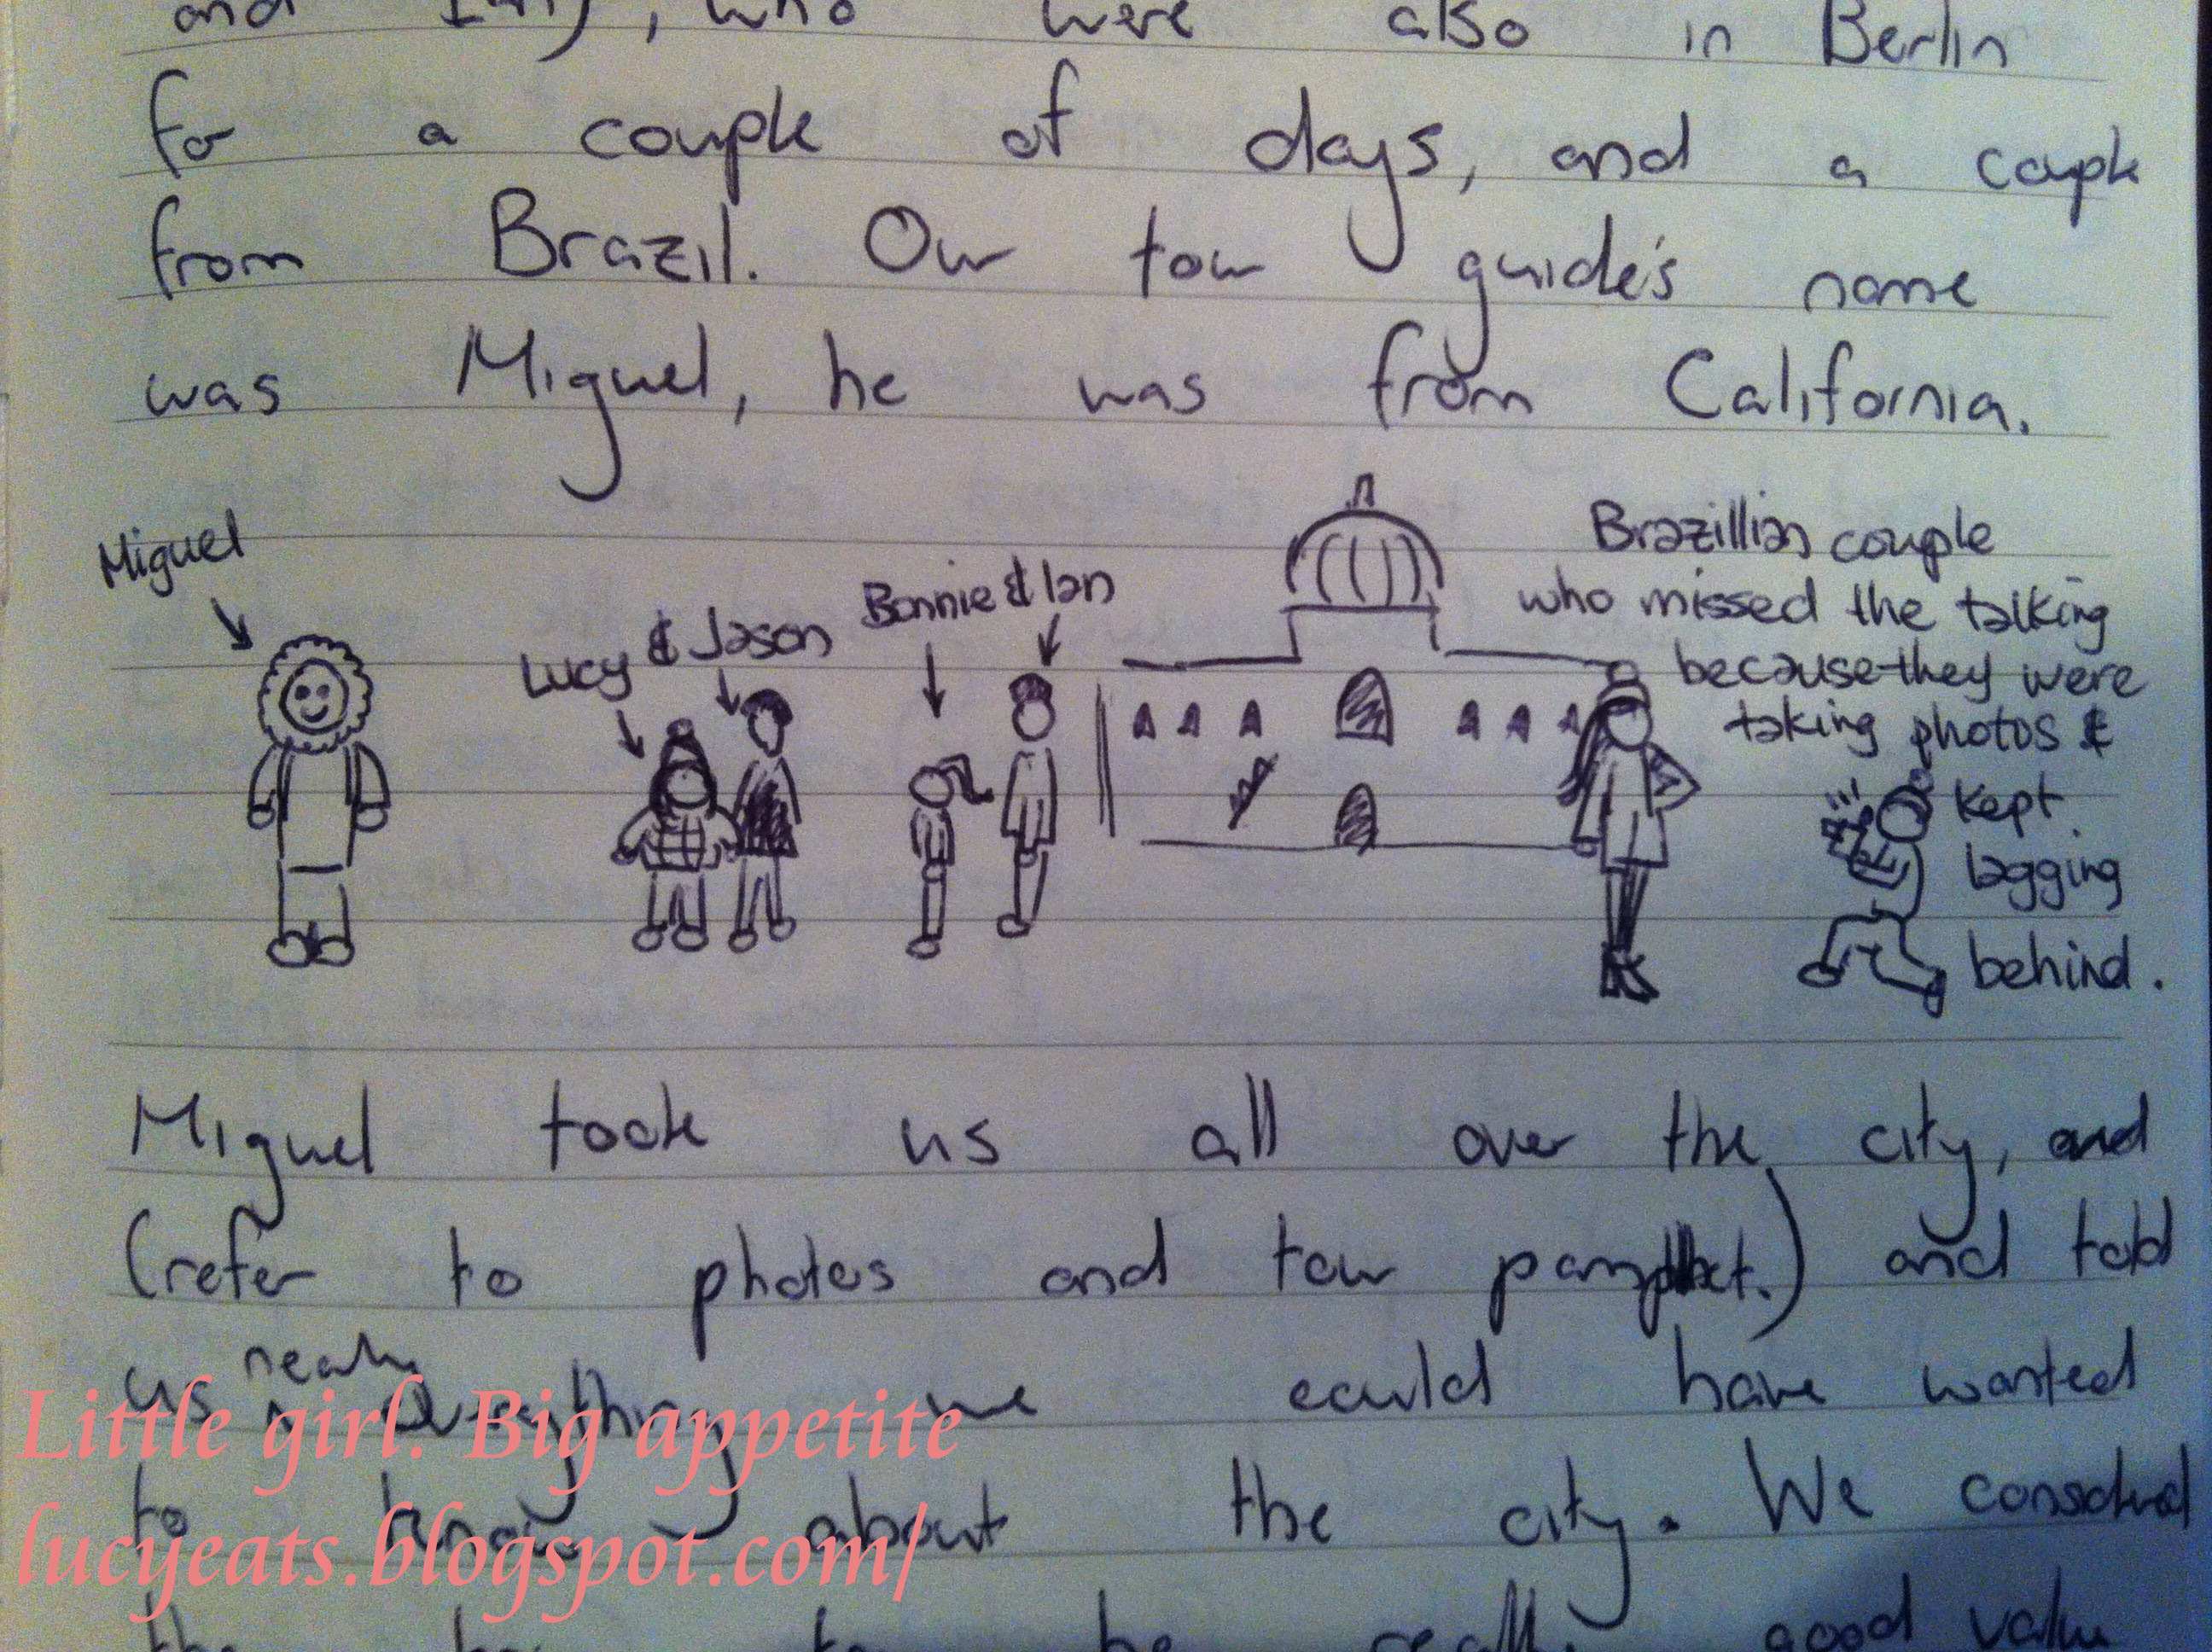 and Ian), who were also in Berlin
for a couple of days, and a couple
from Brazil. Our tour guide's name
was Miguel, he was from California.
Miguel
Lucy & Jason
Bonnie & Ian
Brazillian couple
who missed the talking
because they were
taking photos &
kept
lagging
behind.
Miguel took us all over the city, and
(refer to photos and tour pamphlet.) and told
us nearly everything we could have wanted
to know about the city. We considered
to be really good value
Little girl. Big appetite
lucyeats.blogspot.com/